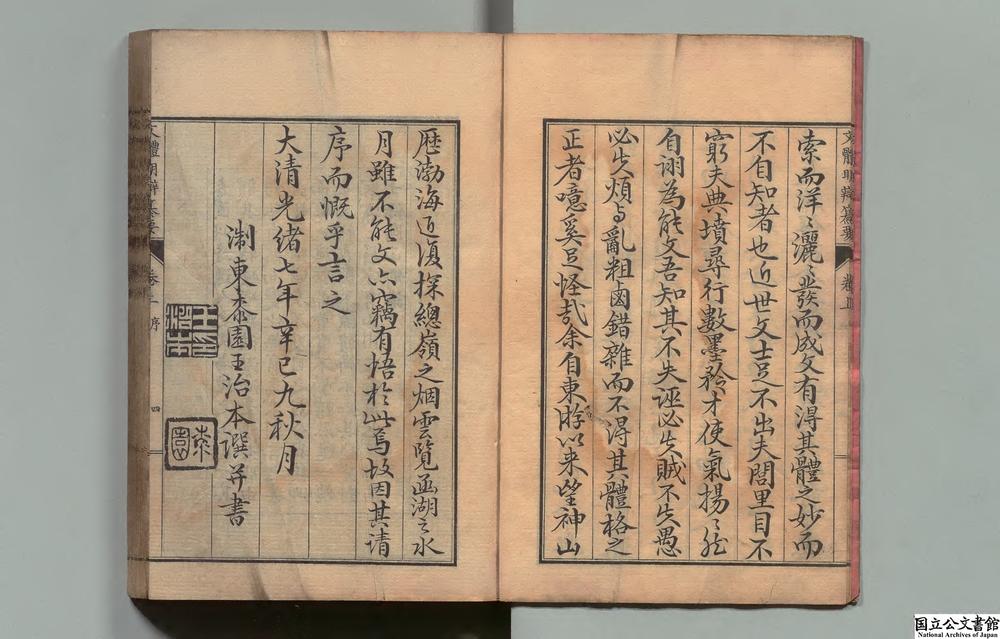 索而洋〻灑〻發而成文有得其體之妙而
不自知者也近世文士足不出夫閭里目不
窮夫典墳尋行數墨矜才使氣揚〻然
自詡為能文吾知其不失誣必失賊不失愚
必失煩与亂粗鹵錯雜而不得其體格之
正者噫奚足怪哉余自東游以来望神山
歷渤海近復探總嶺之烟雲覽函湖之水
月雖不能文亦竊有悟於此焉故因其請
序而慨乎言之
大清光緒七年辛巳九秋月
浙東桼園王治本譔并書
王印治本
桼園
文體明辯纂要
卷一 序
四
国立公文書館
National Archives of Japan